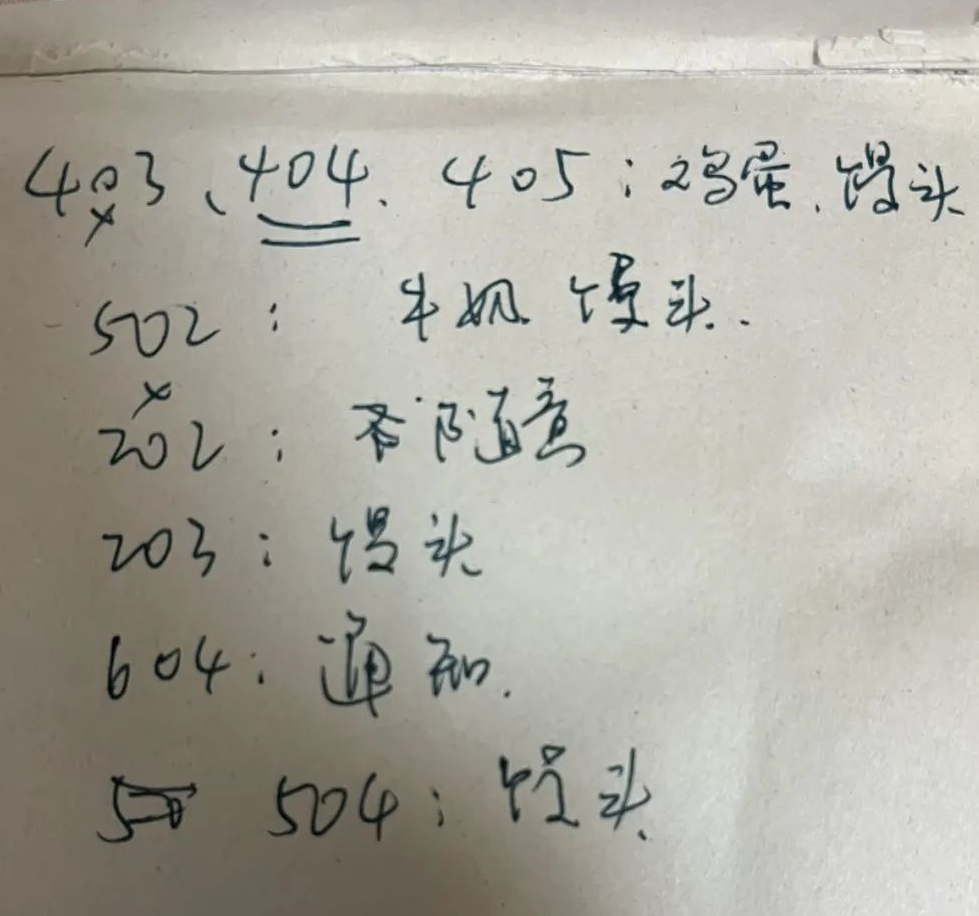 403、404、405：鸡蛋、馒头
502：牛奶 馒头.
202：随意
203：馒头
604：通知.
504：馒头